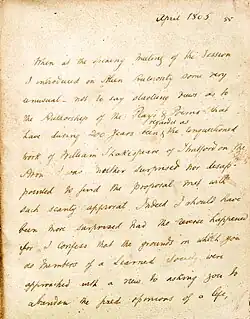 April 1805
When at the opening meeting of the Session
I introduced on Authority some very
unusual - not to say startling views, as to
the Authorship of the Plays & Poems that
have during 200 years been regarded as the unquestioned
work of William Shakespeare of Stratford on the
Avon I was neither surprised nor disap-
pointed to find the proposal met with
such scanty approval Indeed I should have
been more surprised had the reverse happened
for I confess that the grounds on which you
as members of a Learned Society were
approached with a view to asking you to
abandon the opinions of a life,